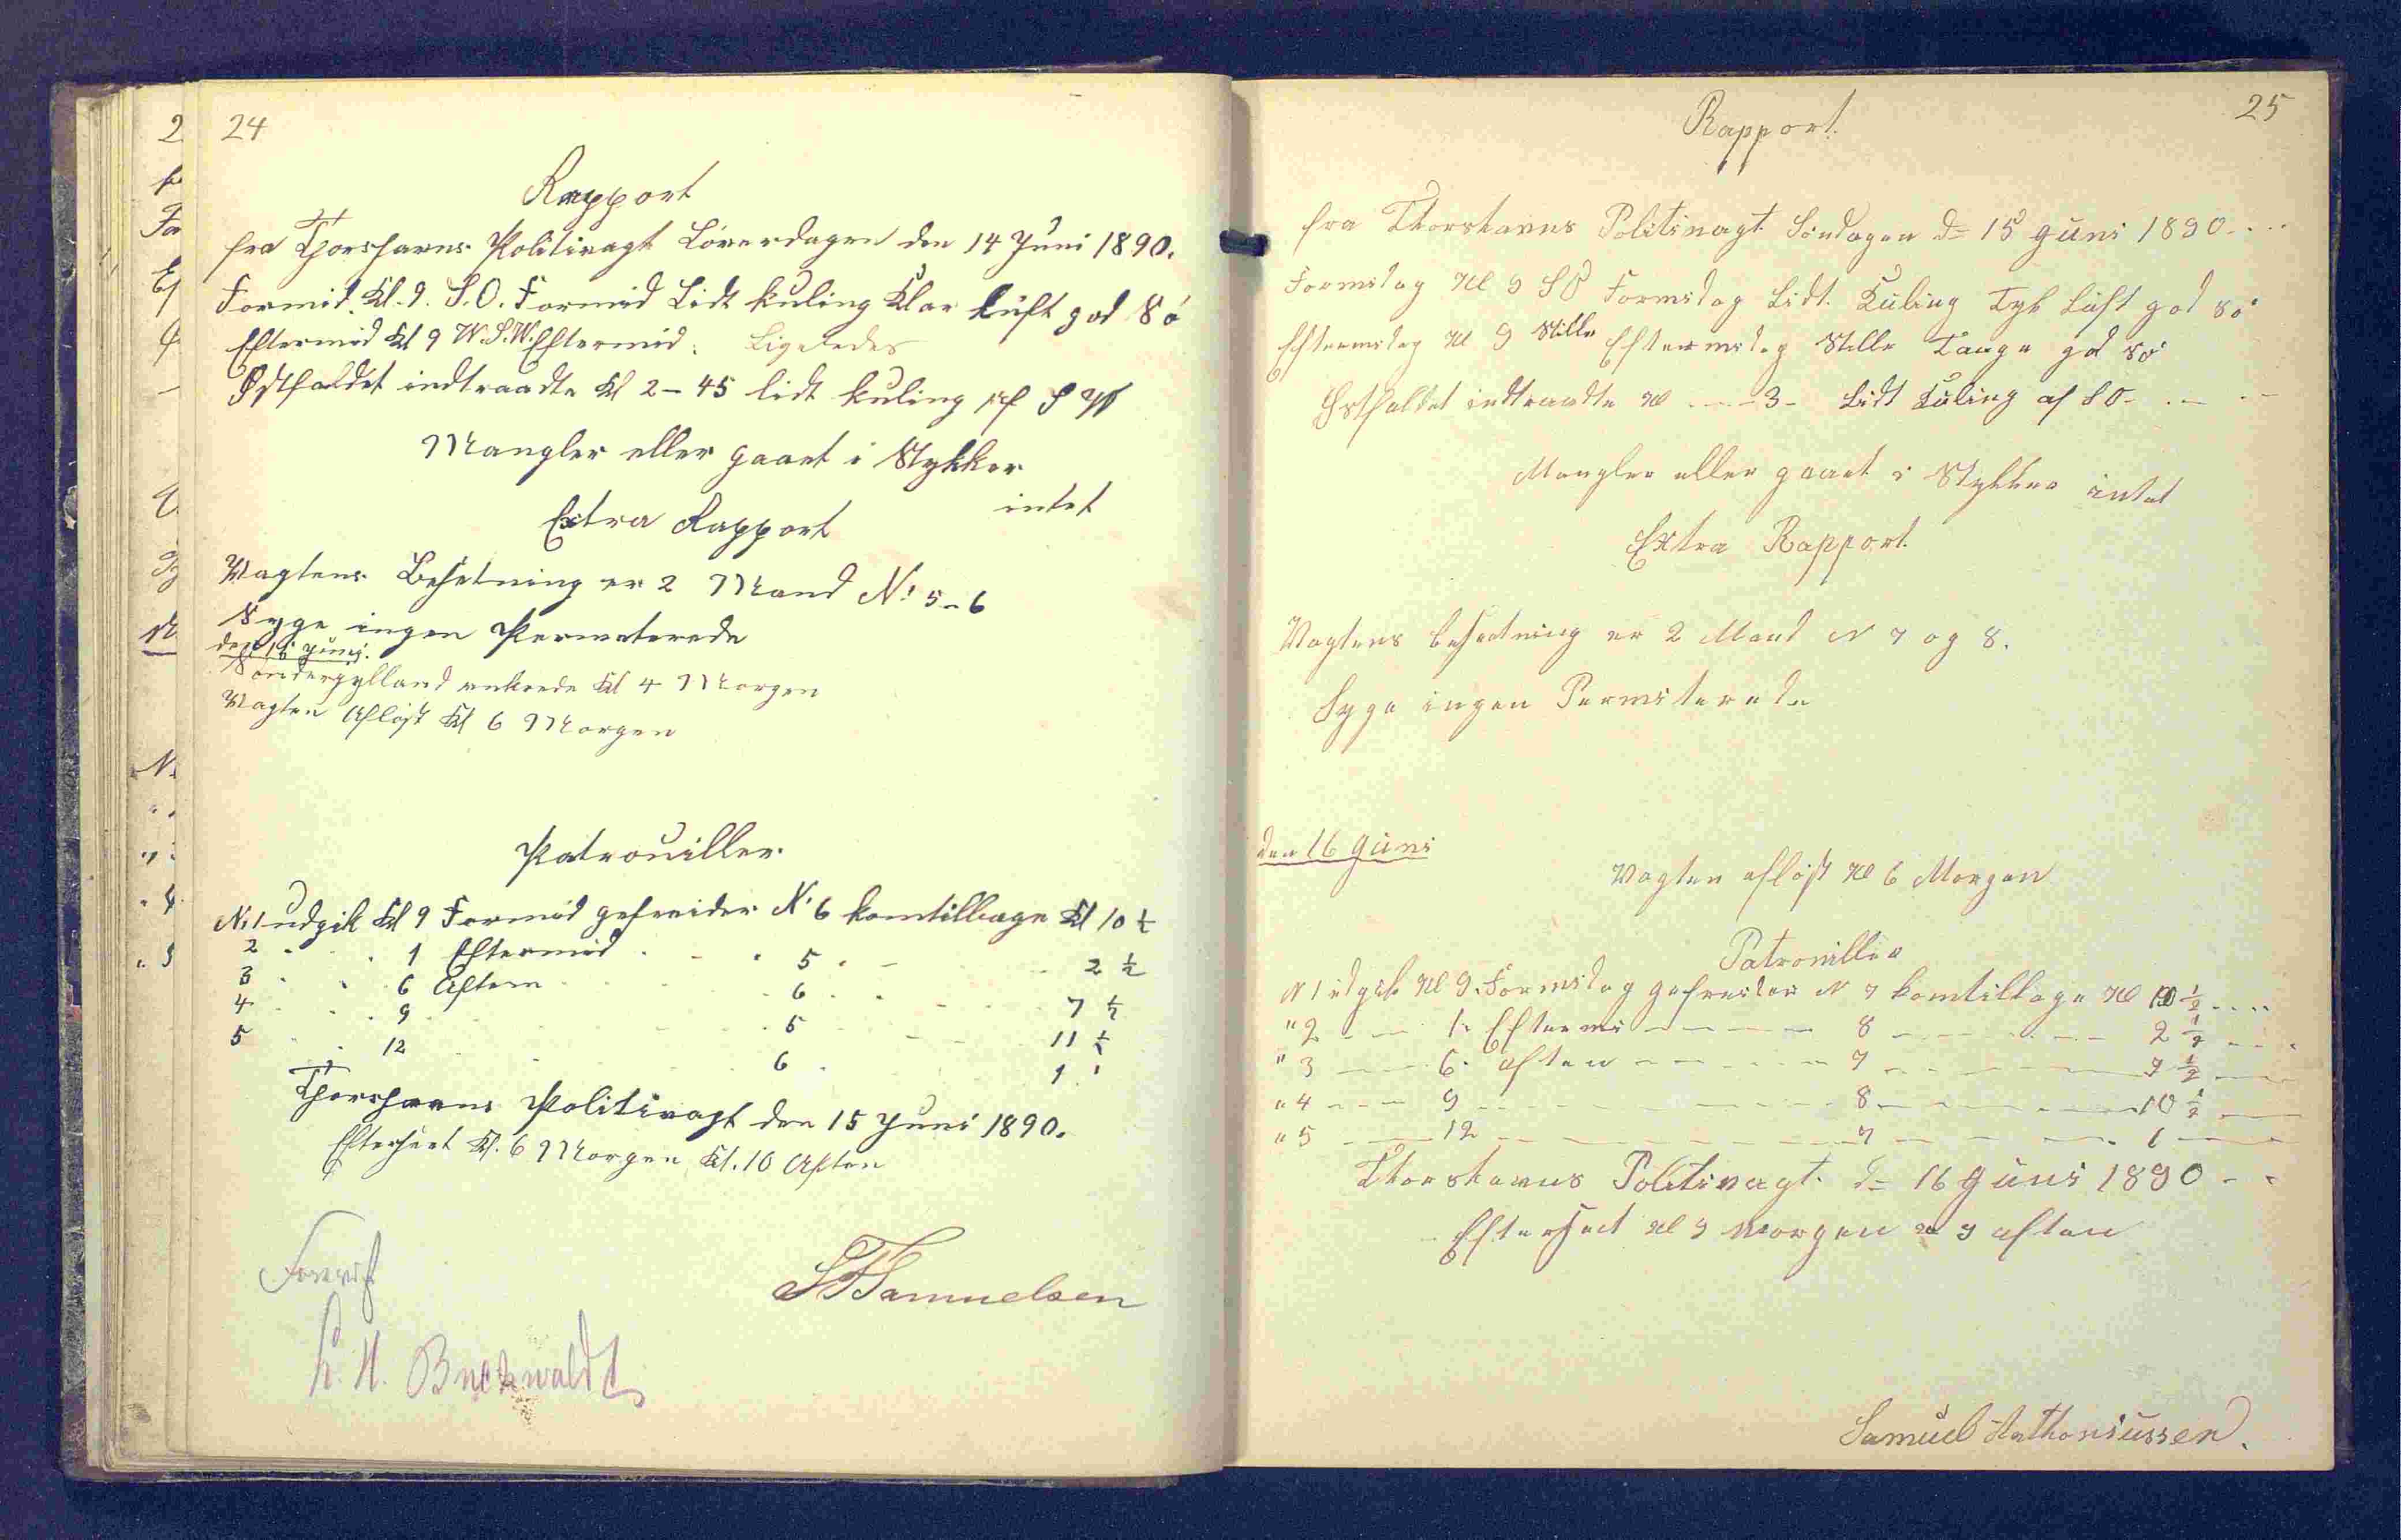 24
Rapport
fra Thorshavns Politivagt Löverdagen den 14 Juni 1890.
Formid. Kl. 9. S.O. Formid Lidt kuling Klar Luft god Sö
Eftermid Kl 9 W.S.W. Eftermid. Ligeledes
Østfaldet indtraadte Kl 2-45 lidt kuling af S W
Mangler eller gaaet i Stykker
intet
Extra Rapport
Vagtens Besetning er 2 Mand No 5-6
Syge ingen Permeterede
den 15 Juni.
Sönderjylland ankrede Kl 4 Morgen
Vagten Aflöst Kl 6 Morgen
Patrouiller
No 1 udgik Kl 9 Formid gefreider No 6 kom tilbage Kl 10 ½
2 " " 1 Eftermid " " 5 " " 2 ½
3 " " 6 Aften " " 6 " " 7 ½
4 " " 9 " " 5 " " 11 ½
5 " " 12 " " 6 " 1 "
Thorshavns Politivagt den 15 Juni 1890.
Efterseet Kl. 6 Morgen Kl. 10 Aften
Forevist
Samuelsen
H. Buchwaldt
25
Rapport.
fra Thorshavns Politivagt Söndagen d= 15 Juni 1890. . . .
Formidag Kl 9 SO Formidag Lidt. Kuling Tyk Luft god Sö
Eftermidag Kl 9 Stille Eftermidag Stille Taage god Sö
Østfaldet indtraadte Kl - - - 3 - Lidt Kuling af SO - . - . -
Mangler eller gaaet i Stykker intet
Extra Rapport.
Vagtens besætning er 2 Mand N 7 og 8.
Syge ingen Permiterede
den 16 Juni
Vagten aflöst Kl 6 Morgen
Patrouiller
N 1 udgik Kl 9. Formidag gefreider N 7 kom tilbage Kl 10 ½ - - - -
" 2 - - - 1. Eftermi - - - - - 8 - - - - - 2 ½ - - -
" 3 - - - 6. aften - - - - - 7 - - - - - 7 ½ - - -
" 4 - - - 9 - - - - - 8 - - - - - 10 ½ - - -
" 5 - - - 12 - - - - - 7 - - - - - 1 - - -
Thorshavns Politivagt. d= 16 Juni 1890 - -
Efterseet Kl 9 Morgen Kl 9 aften
Samuel Anthoniussen.